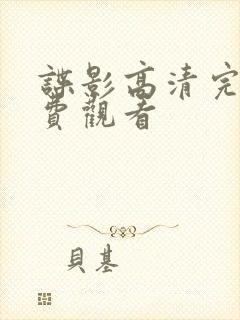 諜影高清完
費觀看
貝基